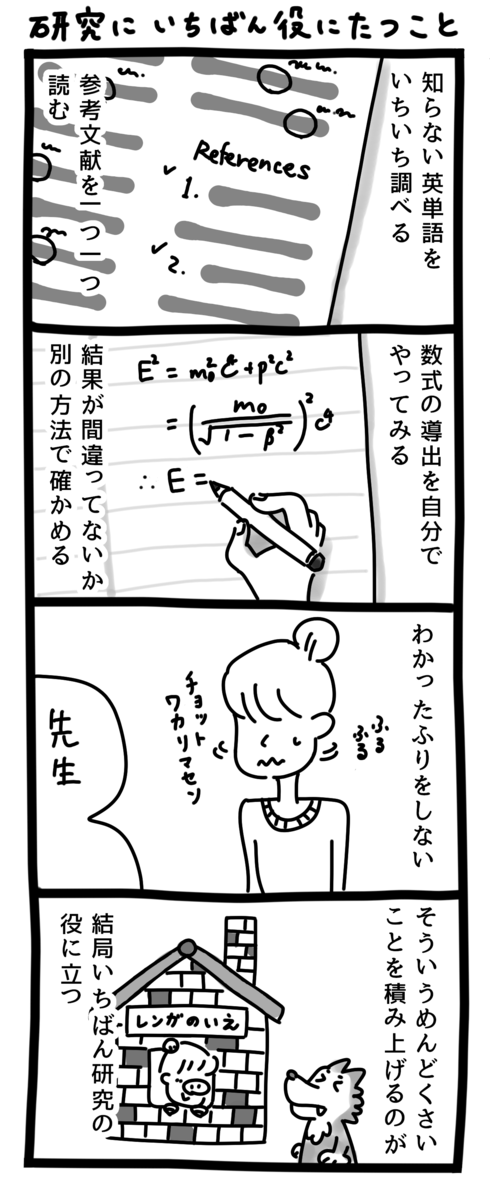 研究に いちばん役にたつこと
知らない英単語を
いちいち調べる
References
1.
2.
参考文献を一つ一つ
読む
数式の導出を自分で
やってみる
E² = m₀²c⁴+p²c²
= (m₀/√1-β²)² c⁴
∴ E =
結果が間違ってないか
別の方法で確かめる
わかったふりをしない
ふる
ふる
チョット
ワカリマセン
先生
そういうめんどくさい
ことを積み上げるのが
レンガのいえ
結局いちばん研究の
役に立つ